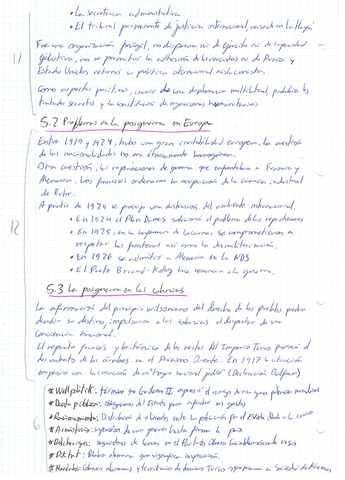 • La secretaría administrativa
• El tribunal permanente de justicia internacional, con sede en La Haya
Fue una organización frágil, no disponían ni de ejército ni de capacidad
ejecutiva, no se permitió la adhesión de los vencidos ni de Rusia y
Estados Unidos retomó su política internacional aislacionista.
11
Como aspectos positivos, de una diplomacia multilateral, los
tratados secretos y la de organismos humanitarios
5.2 Problemas en la posguerra en Europa
Entre 1919 y 1924, hubo una gran inestabilidad europea. La cuestión
de las nacionalidades no era étnicamente homogénea.
Otra cuestión, las reparaciones de guerra que enfrentaba a Francia y
Alemania. Los franceses ordenaron la ocupación de la cuenca industrial
de Ruhr.
A partir de 1924 se produjo una distensión del ambiente internacional.
• En 1924 el Plan Dawes el problema de las reparaciones
12
• En 1925, en la conferencia de Locarno, se comprometieron a
respetar las fronteras así como la desmilitarización.
• En 1926 se admitió a Alemania en la
• El Pacto Briand-Kellog renuncia a la guerra.
5.3 La posguerra en las colonias
La afirmación del principio wilsoniano del derecho de los pueblos a
decidir su destino, en las colonias el despertar de una
conciencia nacional.
El reparto francés y británico de los restos del Imperio Turco provocó el
descontento de los árabes en el Próximo Oriente. En 1917 la situación
empeoró con la creación de "hogar nacional judío" (Declaración Balfour)
6
* Weltpolitik: término que Guillermo II expresó el de una gran potencia mundial
* Deuda pública: obligaciones del Estado para sus gastos
* Racionamiento: Distribución de alimentos entre la población por el Estado
* Armisticio: suspensión de una guerra hasta firmar la paz
* Bolcheviques: seguidores de Lenin en el Partido Obrero Socialdemócrata ruso
* Diktat:
* Mandatos: colonias alemanas y territorios de Turco a Sociedad de Naciones